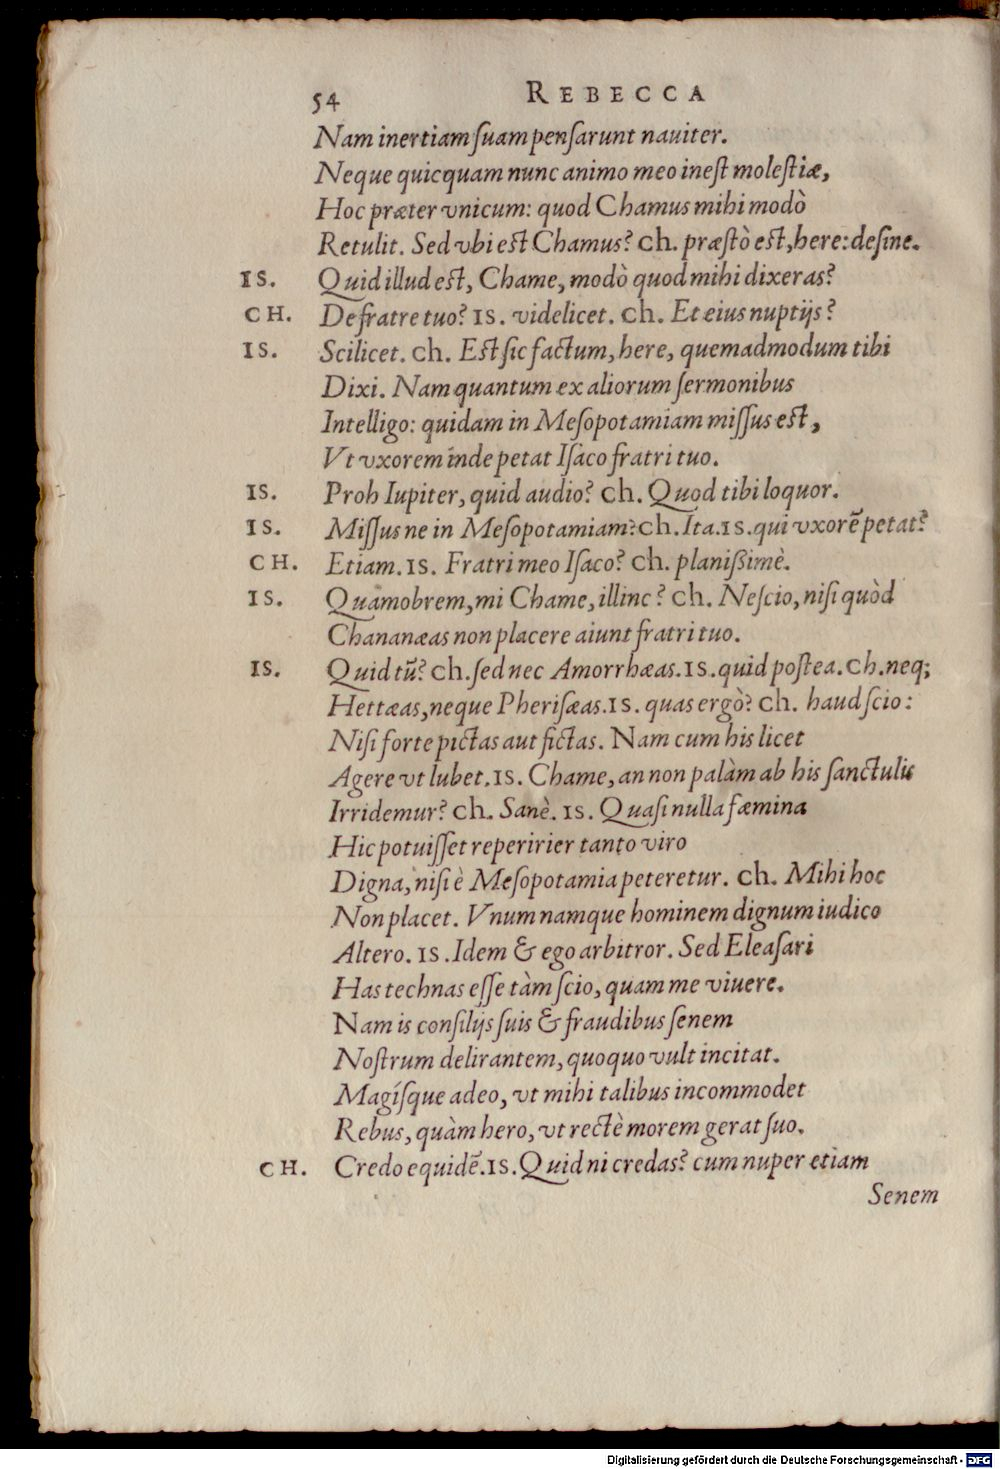 54 REBECCA
Nam inertiam ſuam penſarunt nauiter.
Neque quicquam nunc animo meo ineſt moleſtiæ,
Hoc præter vnicum: quod Chamus mihi modò
Retulit. Sed vbi eſt Chamus? ch. præſtò eſt, here: deſine.
IS. Quid illud eſt, Chame, modò quod mihi dixeras?
CH. De fratre tuo? IS. videlicet. ch. Et eius nuptijs?
IS. Scilicet. ch. Eſt ſic factum, here, quemadmodum tibi
Dixi. Nam quantum ex aliorum ſermonibus
Intelligo: quidam in Meſopotamiam miſſus eſt,
Vt vxorem inde petat Iſaco fratri tuo.
IS. Proh Iupiter, quid audio? ch. Quod tibi loquor.
IS. Miſſus ne in Meſopotamiam? ch. Ita. IS. qui vxorẽ petat?
CH. Etiam. IS. Fratri meo Iſaco? ch. planißimè.
IS. Quamobrem, mi Chame, illinc? ch. Neſcio, niſi quòd
Chananæas non placere aiunt fratri tuo.
IS. Quid tũ? ch. ſed nec Amorrhæas. IS. quid poſtea. ch. neq;
Hettæas, neque Pheriſæas. IS. quas ergò? ch. haud ſcio:
Niſi forte pictas aut fictas. Nam cum his licet
Agere vt lubet. IS. Chame, an non palàm ab his ſanctulis
Irridemur? ch. Sanè. IS. Quaſi nulla fæmina
Hic potuiſſet reperirier tanto viro
Digna, niſi è Meſopotamia peteretur. ch. Mihi hoc
Non placet. Vnum namque hominem dignum iudico
Altero. IS. Idem & ego arbitror. Sed Eleaſari
Has technas eſſe tàm ſcio, quam me viuere.
Nam is conſilijs ſuis & fraudibus ſenem
Noſtrum delirantem, quoquo vult incitat.
Magíſque adeo, vt mihi talibus incommodet
Rebus, quàm hero, vt rectè morem gerat ſuo.
CH. Credo equidẽ. IS. Quid ni credas? cum nuper etiam
Senem
Digitalisierung gefördert durch die Deutsche Forschungsgemeinschaft - DFG